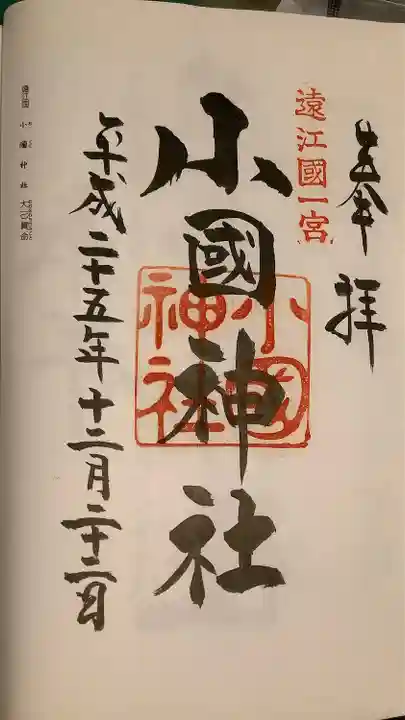 奉拝
遠江國一宮
小國神社
小國神社
平成二十五年十二月二十二日
遠江國 小國神社 大己貴命